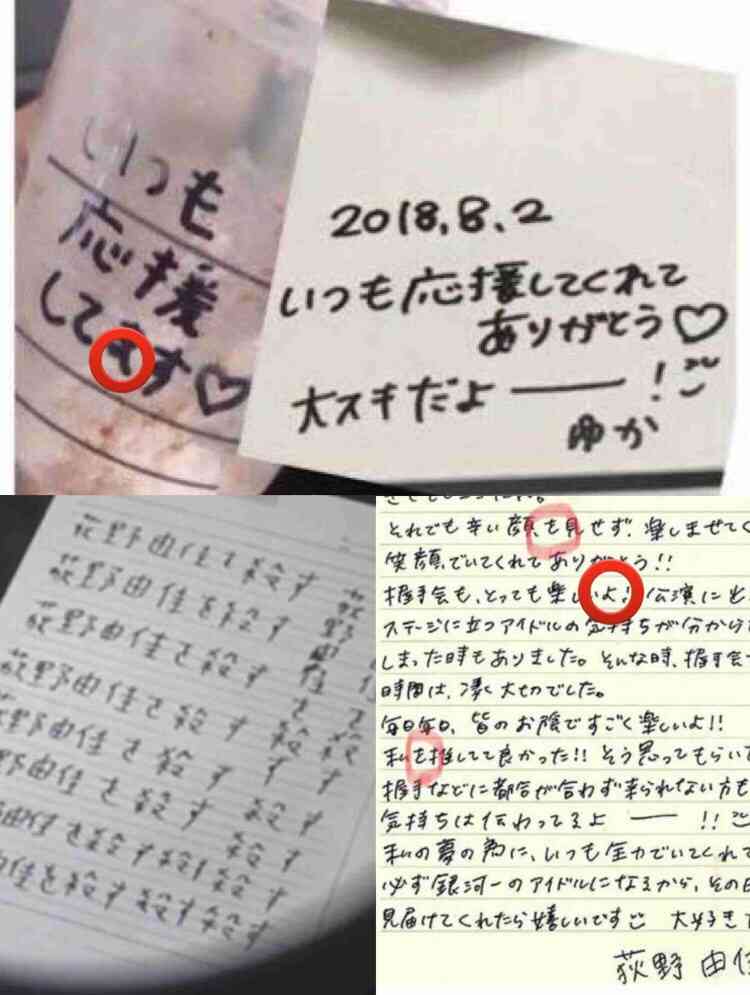 いつも
応援
してます♡
2018.8.2
いつも応援してくれて
ありがとう♡
大スキだよ——!
ゆか
荻野由佳を殺す
荻野由佳を殺す
荻野由佳を殺す
荻野由佳を殺す
荻野由佳を殺す
野由佳を殺す 殺す
由佳を殺す殺す殺す
佳を殺す殺す殺す
荻野由佳を殺す
それでも辛い顔を見せず、楽しませてく
笑顔でいてくれてありがとう!!
握手会も、とっても楽しいよ! 公演にと
ステージに立つアイドルの気持ちが分から
しまった時もありました。そんな時、握手会
時間は、凄く大切でした。
毎日毎日、皆のお陰ですごく楽しいよ!!
私を推してて良かった!! そう思ってもらい
握手などに都合が合わず来られない方も
気持ちは伝わってるよ —— !!
私の夢の為に、いつも全力でいてくれて
必ず銀河一のアイドルになるから、その日
見届けてくれたら嬉しいです 大好き
荻野 由佳